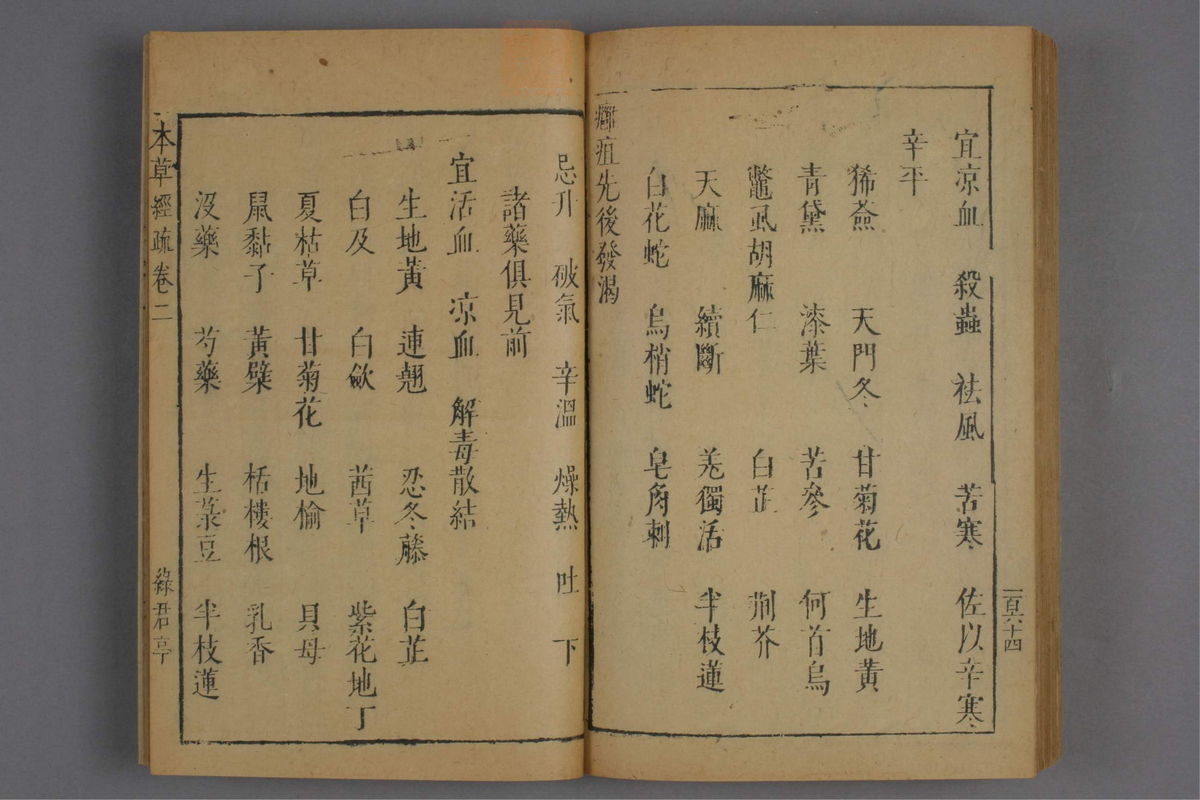 宜凉血　殺蟲　祛風　苦寒　佐以辛寒
辛平
豨薟　天門冬　甘菊花　生地黃
青黛　漆葉　苦參　何首烏
鼈虱胡麻仁　白芷　荆芥
天麻　續斷　羗獨活　半枝蓮
白花蛇　烏梢蛇　皂角刺
癰疽先後發渴
一百六十四
忌升　破氣　辛溫　燥熱　吐　下
諸藥俱見前
宜活血　凉血　解毒散結
生地黃　連翹　忍冬藤　白芷
白及　白歛　茜草　紫花地丁
夏枯草　甘菊花　地榆　貝母
鼠黏子　黃檗　栝樓根　乳香
沒藥　芍藥　生菉豆　半枝蓮
本草經疏卷二　綠君亭